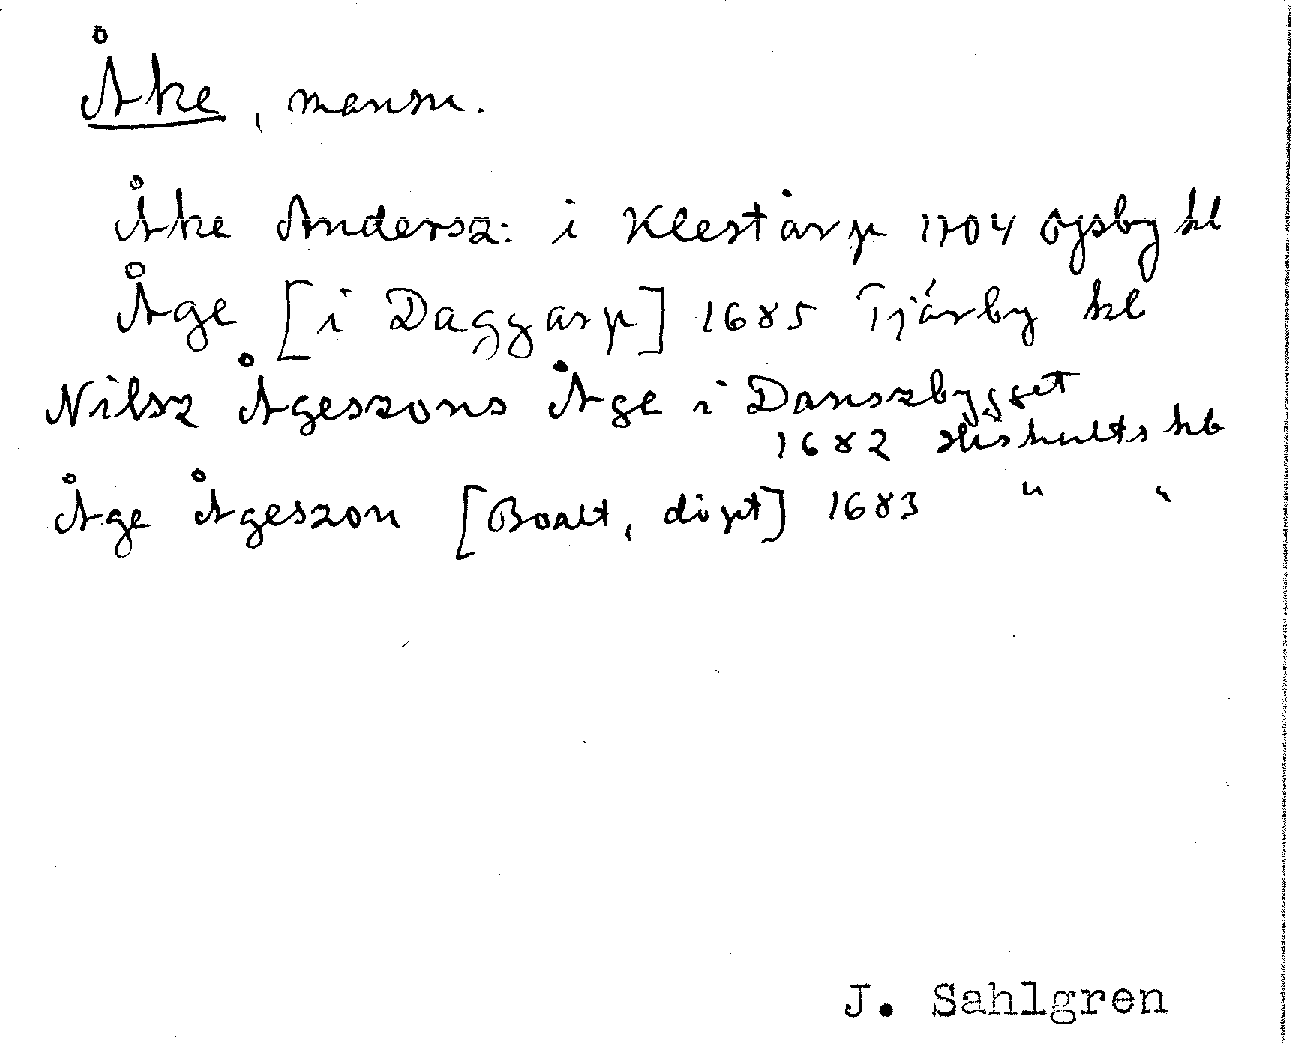 Åke, mansn.
Åke Andersz: i Klestarp 1704 Ysby kb
Åge [i Daggarp] 1685 Tjärby kb
Nilsz Ågeszons Åge i Danszbygget
1682 Hishults kb
Åge Ågeszon [Boalt, döpt] 1683 " "
J. Sahlgren